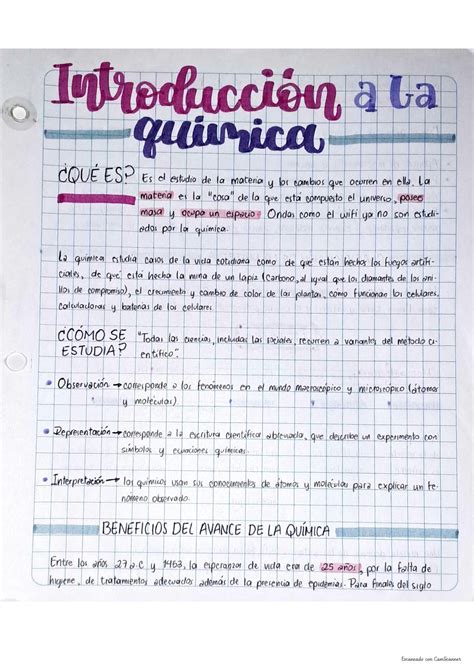 Introducción a la
química
¿QUÉ ES? Es el estudio de la materia y los cambios que ocurren en ella. La
materia es la "cosa" de la que esta compuesto el universo, posee
masa y ocupa un espacio. Ondas como el wifi ya no son estudi-
adas por la química.
La química estudia casos de la vida cotidiana como de qué estan hechos los fuegos artifi-
ciales, de que esta hecha la mina de un lapiz (Carbono, al igual que los diamantes de los ani-
llos de compromiso), el crecimiento y cambio de color de las plantas, como funcionan los celulares,
calculadoras y baterías de los celulares.
¿CÓMO SE
ESTUDIA? "Todas las ciencias, incluidas las sociales, recurren a variantes del metodo ci-
entífico".
• Observación → corresponde a los fenómenos en el mundo macroscópico y microscópico (átomos
y moléculas)
• Representación → corresponde a la escritura científica abreviada, que describe un experimento con
símbolos y ecuaciones químicas.
• Interpretación → los químicos usan sus conocimientos de átomos y moléculas para explicar un fe-
nómeno observado.
BENEFICIOS DEL AVANCE DE LA QUÍMICA
Entre los años 27 a.C y 1463, la esperanza de vida era de 25 años, por la falta de
higiene, de tratamientos adecuados además de la presencia de epidemias. Para finales del siglo
Escaneado con CamScanner